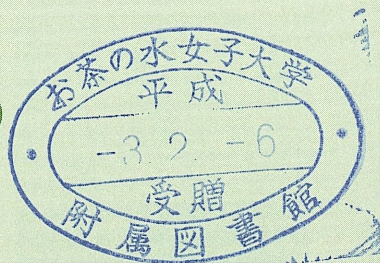 お茶の水女子大学
平成
-3.2.-6
受贈
附属図書館